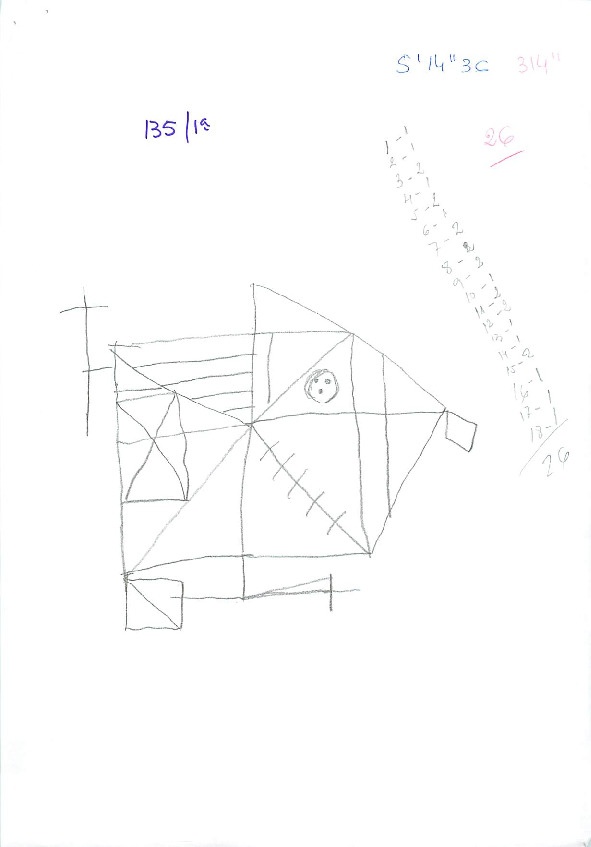 5'14"3c 314"
135/1ª
26
1-1
2-1
3-2
4-1
5-2
6-1
7-2
8-2
9-2
10-1
11-2
12-2
13-1
14-1
15-2
16-1
17-1
18-1
26